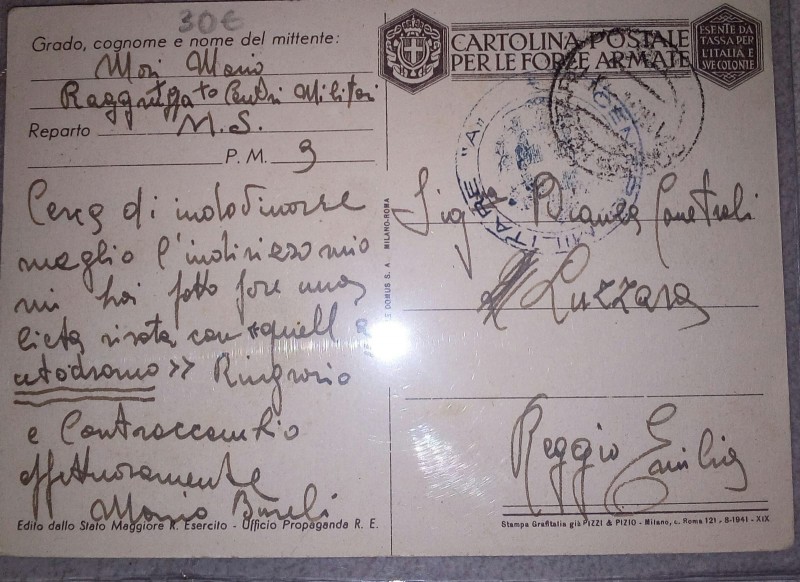 30€
Grado, cognome e nome del mittente:
Mori Mario
Centri Militari
Reparto M.S.
P. M. 3
Cerca di
meglio l'indirizzo mio
mi hai fatto fare una
lieta risata con «quell'a
utodromo» Ringrazio
e Contraccambio
affettuosamente
Mario
Edito dallo Stato Maggiore R. Esercito - Ufficio Propaganda R. E.
CARTOLINA POSTALE
PER LE FORZE ARMATE
ESENTE DA
TASSA PER
L'ITALIA E
SVE COLONIE
MILITARE "A"
Bianca
Luzzara
Reggio Emilia
DOMUS S. A. MILANO-ROMA
Stampa Grafitalia già PIZZI & PIZIO - Milano, c. Roma 121 - 8-1941 - XIX